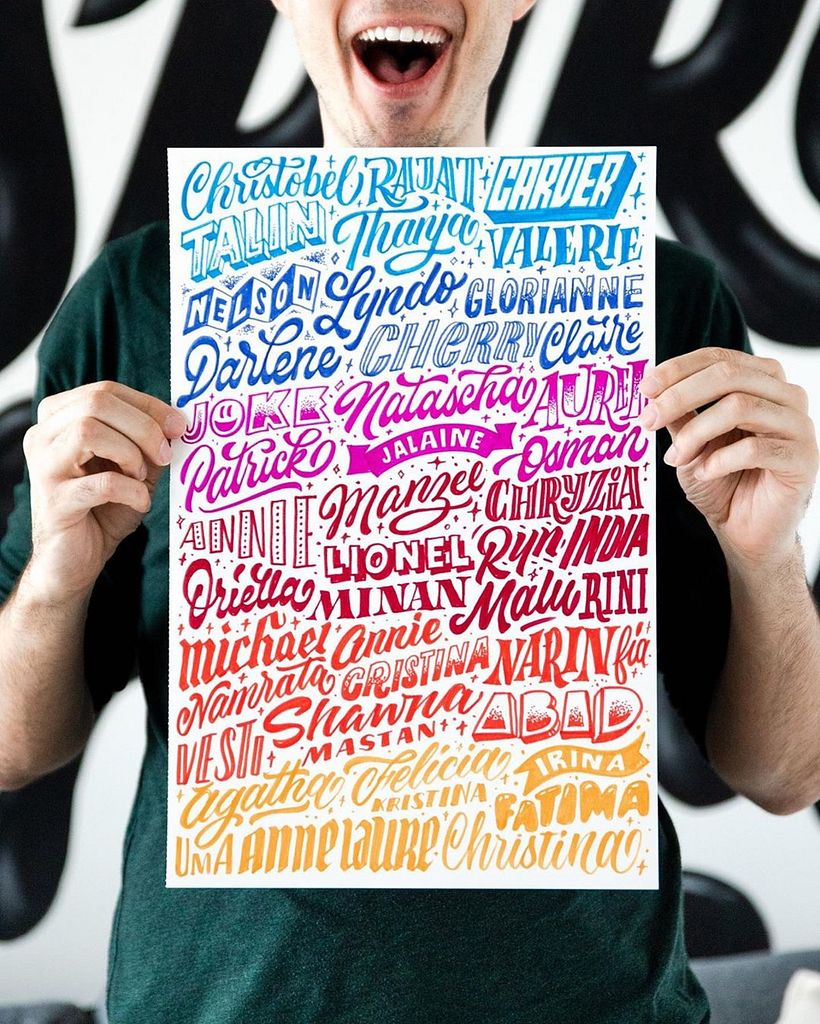 Christobel RAJAT CARVER
TALIN Thanya VALERIE
NELSON Lyndo GLORIANNE
Darlene CHERRY Claire
JOKE Natascha
Patrick JALAINE Osman
ANNIE Manzel CHRYZIA
Oriella LIONEL Ryn INDIA
MINAN Malu RINI
michael Annie NARIN fia
Namrata CRISTINA
VESTI Shawna ABID
MASTAN
Agatha Felicia IRINA
KRISTINA FATIMA
UMA ANNELAURE Christina